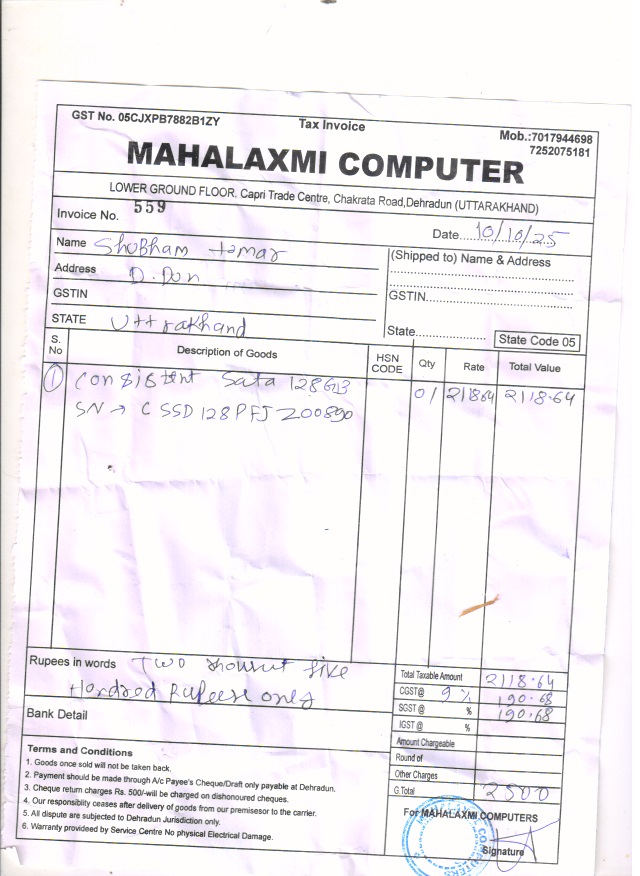 GST No. 05CJXPB7882B1ZY
Tax Invoice
Mob.:7017944698
7252075181
MAHALAXMI COMPUTER
LOWER GROUND FLOOR, Capri Trade Centre, Chakrata Road,Dehradun (UTTARAKHAND)
Invoice No. 559
Date 10/10/25
Name Shubham tamar
Address D.Dun
GSTIN
STATE Uttrakhand
(Shipped to) Name & Address
GSTIN
State
State Code 05
S. No Description of Goods HSN CODE Qty Rate Total Value
1 Consistent Sata 128GB 01 2118.64 2118.64
SN → CSSD128PFJZ00890
Rupees in words Two thousut five
Hundred Rupeese only
Bank Detail
Total Taxable Amount 2118.64
CGST@ 9% 190.68
SGST @ % 190.68
IGST @ %
Amount Chargeable
Round of
Other Charges
G.Total 2500
Terms and Conditions
1. Goods once sold will not be taken back.
2. Payment should be made through A/c Payee's Cheque/Draft only payable at Dehradun.
3. Cheque return charges Rs. 500/-will be charged on dishonoured cheques.
4. Our responsibility ceases after delivery of goods from our premisesor to the carrier.
5. All dispute are subjected to Dehradun Jurisdiction only.
6. Warranty provideed by Service Centre No physical Electrical Damage.
For MAHALAXMI COMPUTERS
Signature